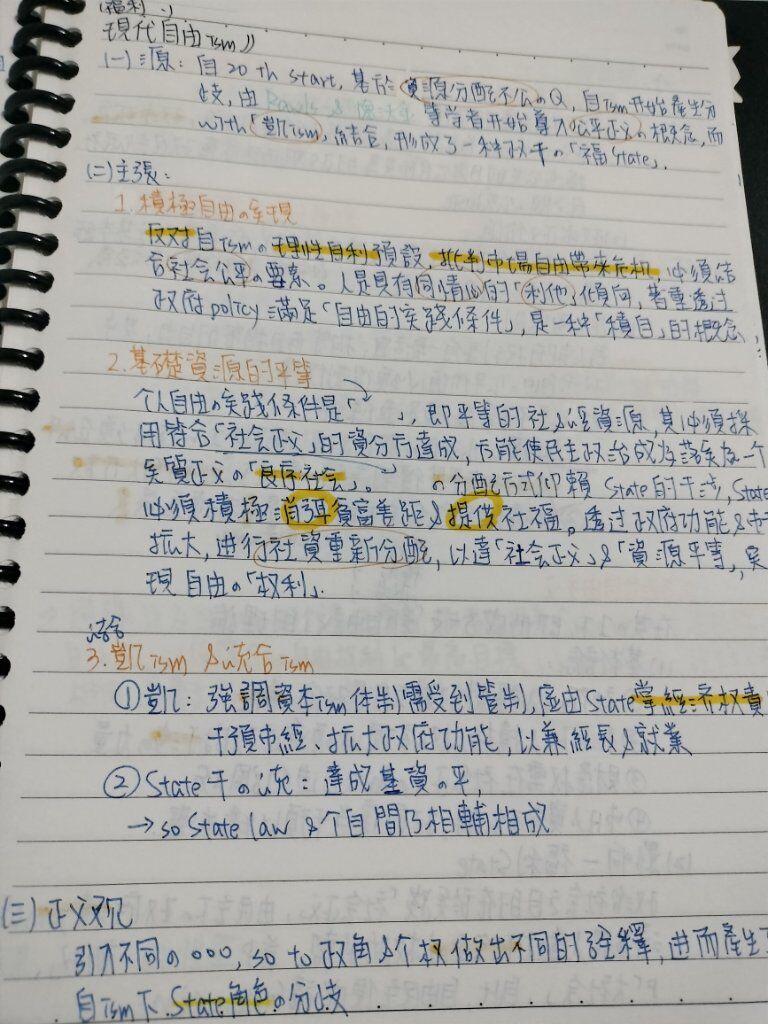 (福利..)
現代自由Ism))
(一)源：自20 th start, 基於資源分配不公のQ, 自Ism開始產生分
歧, 由Rawls & 等學者開始導入公平正义の概念, 而
with「凱Ism」結合, 形成了一種政干の「福State」.
(二)主張：
1.積極自由の实現
反对自Ismの理性自利預設, 批判市場自由帶來危机, 必須結
合社会公平の要素。人是具有同情心的「利他」傾向, 著重透过
政府policy滿足「自由的实践條件」, 是一种「積自」的概念,
2.基礎資源的平等
个人自由の实践條件是「 」, 即平等的社&經資源, 其必須採
用符合「社会正义」的資分方達成, 方能使民主政治成为落实為一个
实質正义の「良序社会」。 の分配方式仰賴State的干涉, State
必須積極消弭貧富差距&提供社福。透过政府功能&
拡大, 進行社資重新分配, 以達「社会正义」&「資源平等」, 实
現自由の「权利」.
結合
3.凱Ism &統合Ism
①凱：強調資本Ism体制需受到管制, 應由State掌經濟权責
干預市經、拡大政府功能, 以兼經長&就業
②State干の統：達成基資の平,
→so State law &个自間乃相輔相成
(三)正义观
引入不同の○○○, so to政角&个权做出不同的詮釋, 進而產生
自Ism下State角色の分歧